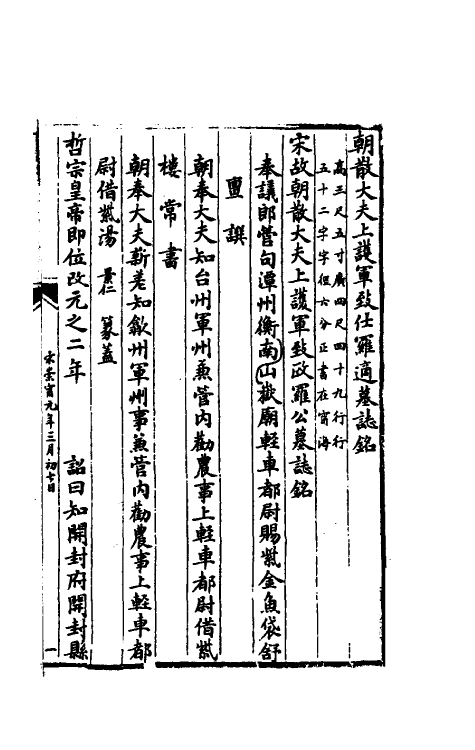 朝散大夫上護軍致仕羅適墓誌銘
高三尺五寸廣四尺四十九行行
五十二字字徑六分正書在寧海
宋故朝散大夫上護軍致政羅公墓誌銘
奉議郎管句潭州衡南山嶽廟輕車都尉賜紫金魚袋舒
亶撰
朝奉大夫知台州軍州兼管內勸農事上輕車都尉借紫
樓常書
朝奉大夫新差知歙州軍州事兼管內勸農事上輕車都
尉借紫湯景仁篆蓋
哲宗皇帝即位改元之二年 詔曰知開封府開封縣
宋崇寧元年三月初七日
一